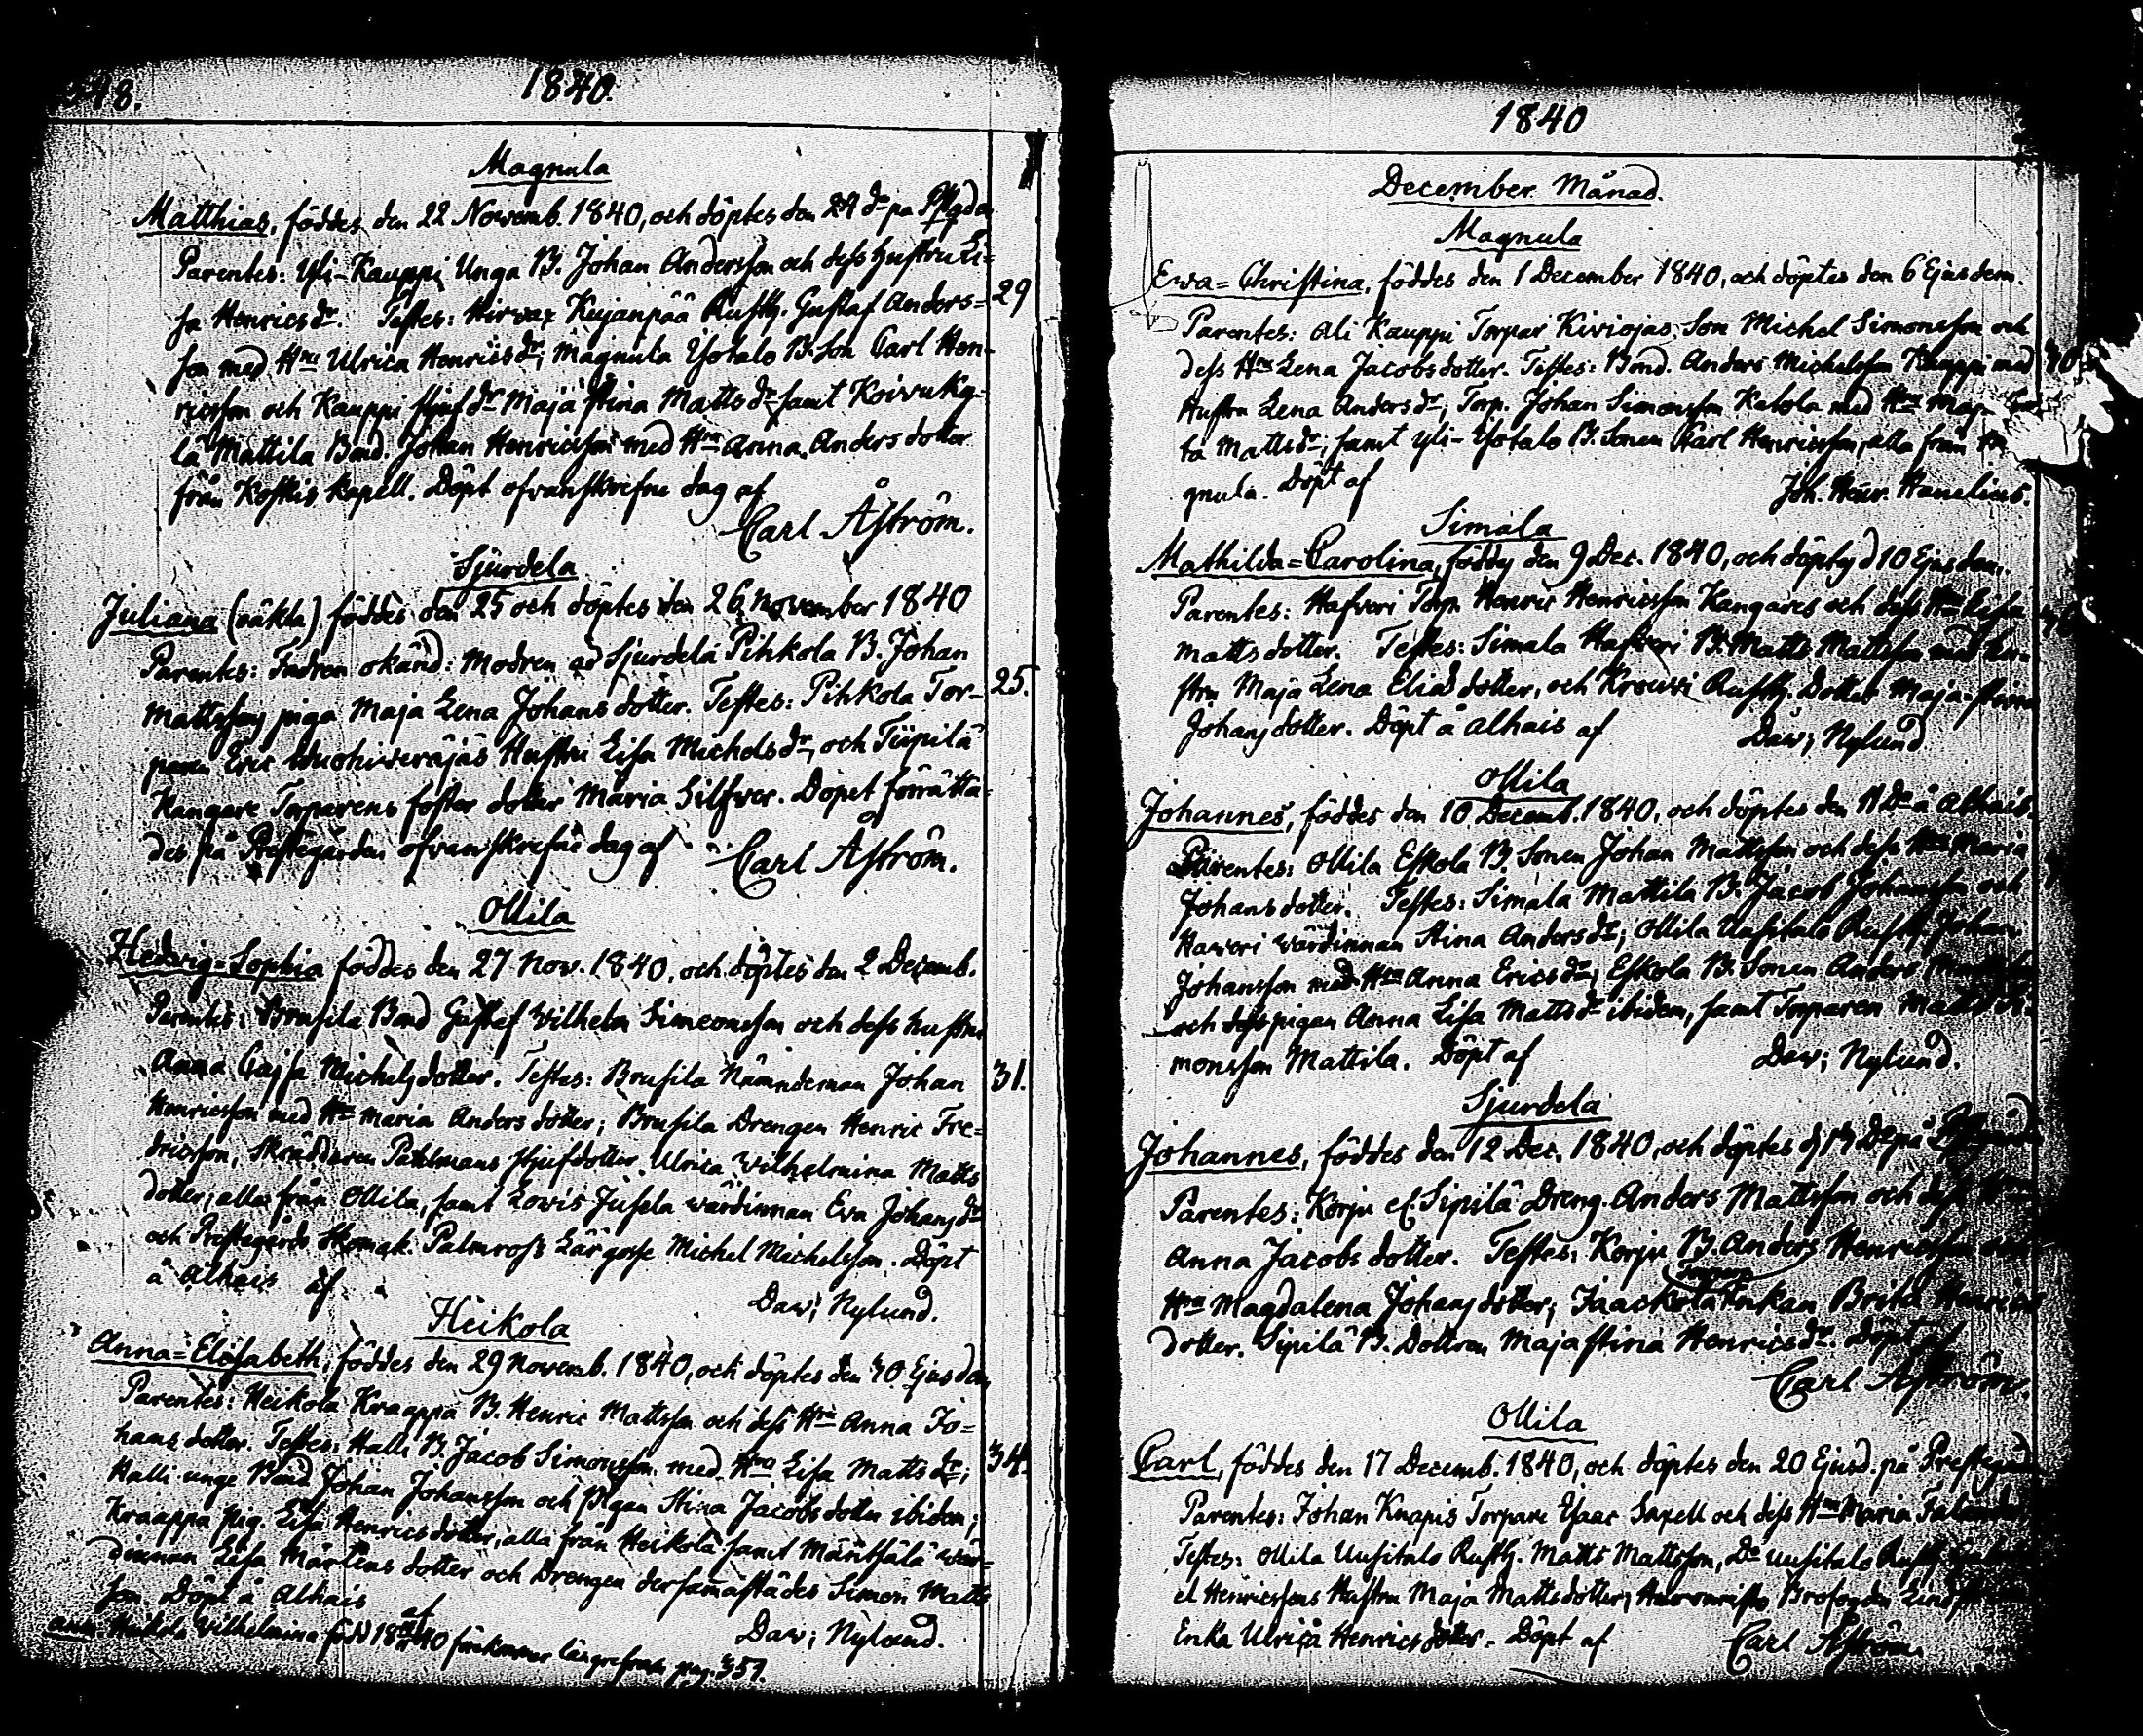 48.
1840.
Magnula
Matthias, föddes den 22 Novemb. 1840, och döptes den 24 dº på
Parentes: Yli-Kauppi Unga B. Johan Andersson och dess hustru Li=
sa Henricsdr. Testes: Hirvax Kujanpää Rusth. Gustaf Anders=
29
son med Hru Ulrica Henricsdr; Magnula Ylotalo B. Son Carl Hen-
ricsson och Kauppi stjufdr Maja Stina Mattsdr samt Koivuky-
lä Mattila Bond. Johan Henricsson med Hru Anna Andersdotter
från Koskis kapell. Döpt ofvanskrefne dag af
Carl Åström.
Sjurdela
Juliana (oäkta) föddes den 25 och döptes den 26 November 1840
Parentes: Fadren okänd: Modren ad Sjurdela Pihkola B. Johan
Mattssons piga Maja Lena Johans dotter. Testes: Pihkola Tor-
25.
paren Eric Hustru Lisa Michelsdr, och Tiipilä
Kangare Torparens foster dotter Maria Silfver. Dopet förätta-
des på Prestegården ofvanskrefne dag af
Carl Åström.
Ollila
Hedvig=Sophia föddes den 27 Nov. 1840, och döptes den 2 Decemb.
Parentes: Brusila Bond Gustaf Wilhelm Simeonsson och dess hustru
Anna Cajsa Michelsdotter. Testes: Brusila Nämndeman Johan
31.
Henricsson med Hru Maria Andersdotter; Brusila Drengen Henric Fre=
dricsson, Skräddaren Pahlmans stjufdotter Ulrica Wilhelmina Matts
dotter, alla från Ollila, samt Lowis Jusela wärdinnan Eva Johansdr
och Prestegårds Skomak. Palmross Lärgosse Michel Michelsson. Döpt
å Alhais af
Daw; Nylund.
Heikola
Anna=Elisabeth, föddes den 29 Novemb. 1840, och döptes den 30 Ejusdem
Parentes: Heikola Kraappa B. Henric Mattsson och dess Hru Anna Jo=
hansdotter. Testes: Halli B. Jacob Simonsson med Hru Lisa Mattsdr;
34.
Halli unge Bond Johan Johansson och Pigan Stina Jacobsdotter ibidem;
Kraappa Pig. Lisa Henricsdotter, alla från Heikola samt Mäntsälä wär-
dinnan Lisa Mårtens dotter och Drengen dersammastädes Simon Matts
son. Döpt å Alhais af
Daw; Nylund.
Heikola Wilhelmina född 40 förekommer pag. 351.
1840
December Månad.
Magnula
Ewa=Christina, föddes den 1 December 1840, och döptes den 6 Ejusdem.
Parentes: Ali Kauppi Torpar Kiviojas Son Michel Simonsson och
dess Hru Lena Jacobsdotter. Testes: Bond. Anders Michelsson Kauppi med
Hustru Lena Andersdr; Torp. Johan Simonsson Katola med Hru Maja
ta Mattsdr; samt Yli-Ylotalo B. Sonen Carl Henricsson, alla från
gnula. Döpt af
Joh. Henr.
Simala
Mathilda=Carolina, föddes den 9 Dec. 1840, och döptes d 10 Ejusdem.
Parentes: Hafveri Torp. Henric Henricsson Kangares och dess Hru Lisa
Matts dotter. Testes: Simala Hafveri B. Matts Mattsson med Hu-
stru Maja Lena Elias dotter, och Krouvi Rusth. Dotter Maja Stina
Johansdotter. Döpt å Alhais af
Daw; Nylund
Ollila
Johannes, föddes den 10 Decemb. 1840, och döptes den 11 Dº å Alhais.
Parentes: Ollila Eskola B. Sonen Johan Mattsson och dess Hru Maria
Johansdotter. Testes: Simala Mattila B. Jacob Johansson och
Haweri wärdinnan Stina Andersdr; Ollila Uusitalo Rusth. Johan
Johansson med Hru Anna Ericsdr; Eskola B. Sonen Anders
och dess pigan Anna Lisa Mattsdr ibidem, samt Torparen Matts Si-
monsson Mattila. Döpt af
Daw; Nylund.
Sjurdela
Johannes, föddes den 12 Dec. 1840, och döptes d Dº på
Parentes: Korju el. Sipilä Dreng. Anders Mattsson och dess Hru
Anna Jacobs dotter. Testes: Korju B. Anders Henricsson
Hru Magdalena Johansdotter; Jaackola Enkan Brita Henrics
dotter. Sipilä B. Dottren Maja Stina Henricsdr. Döpt af
Carl Åström.
Ollila
Carl, föddes den 17 Decemb. 1840, och döptes den 20 Ejusd. på Prestegård
Parentes: Johan Knapis Torpare Isaac Saxell och dess Hru Maria
Testes: Ollila Uusitalo Rusth. Matts Mattsson, Dº Uusitalo Rusth.
el Henricssons Hustru Maja Mattsdotter,
Enka Ulrica Henricsdotter. Döpt af
Carl Åström.